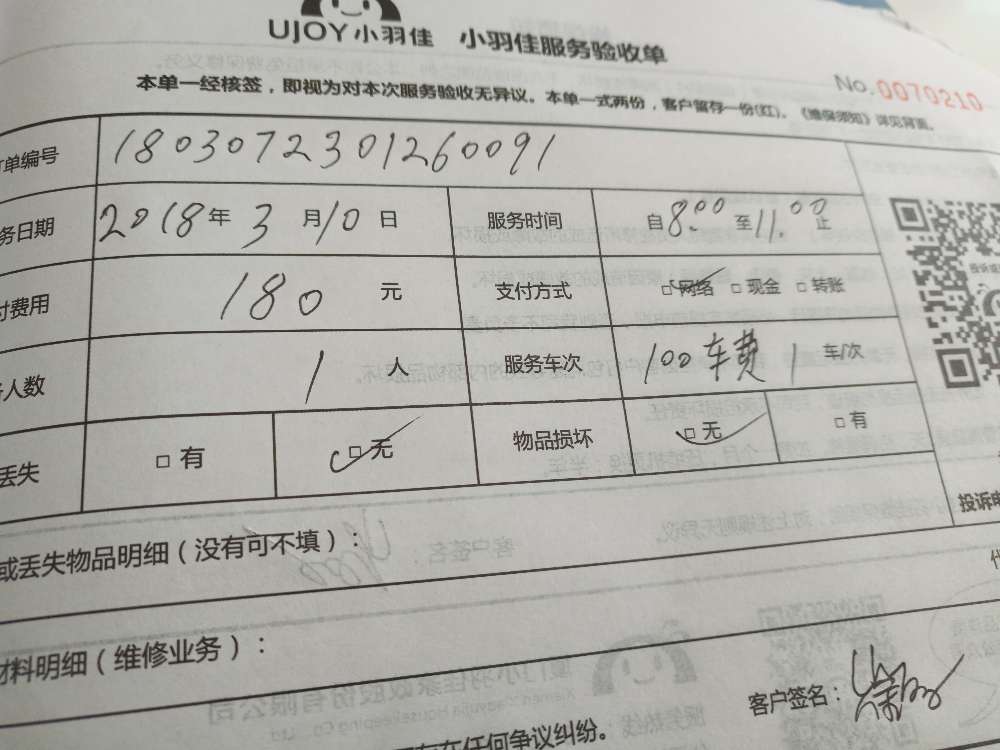 UJOY小羽佳 小羽佳服务验收单
No.0070210
本单一经核签，即视为对本次服务验收无异议。本单一式两份，客户留存一份(红)。《维保须知》详见背面。
单编号 1803072301260091
务日期 2018年3月10日 服务时间 自8:00至11:00止
付费用 180元 支付方式 □网络 □现金 □转账
人数 1人 服务车次 100车费 1 车/次
丢失 □有 □无 物品损坏 □无 □有
投诉电
或丢失物品明细（没有可不填）：
材料明细（维修业务）：
客户签名：
存在任何争议纠纷。